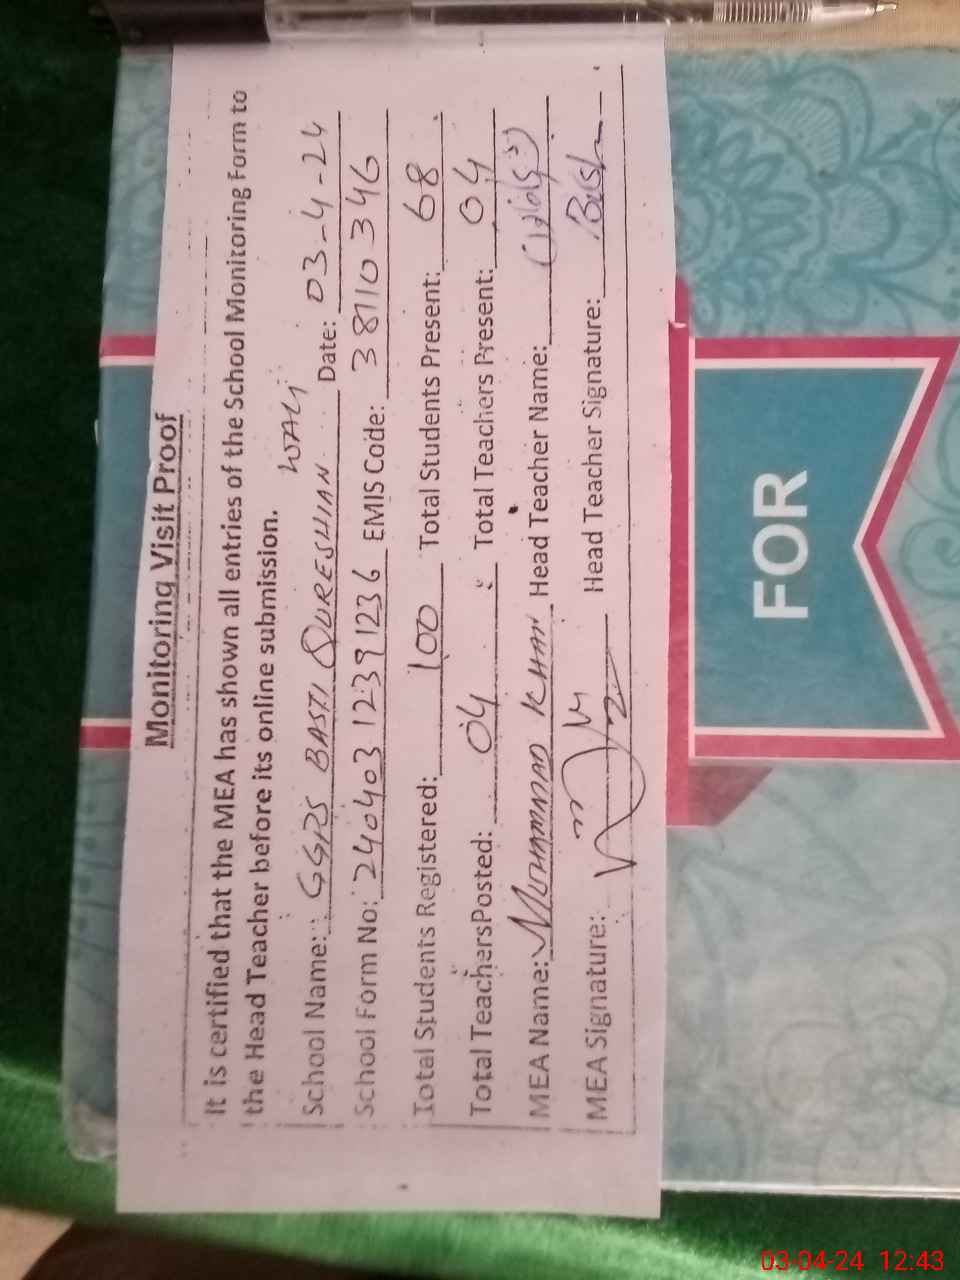 Monitoring Visit Proof
It is certified that the MEA has shown all entries of the School Monitoring Form to
the Head Teacher before its online submission.
School Name: GGPS BASTI QURESHIAN WALI Date: 03-4-24
School Form No: 240403 12391236 EMIS Code: 38110346
Total Students Registered: 100 Total Students Present: 68
Total Teachers Posted: 04 Total Teachers Present: 04
MEA Name: MUHAMMAD KHAN Head Teacher Name:
MEA Signature: Head Teacher Signature:
FOR
03-04-24 12:43